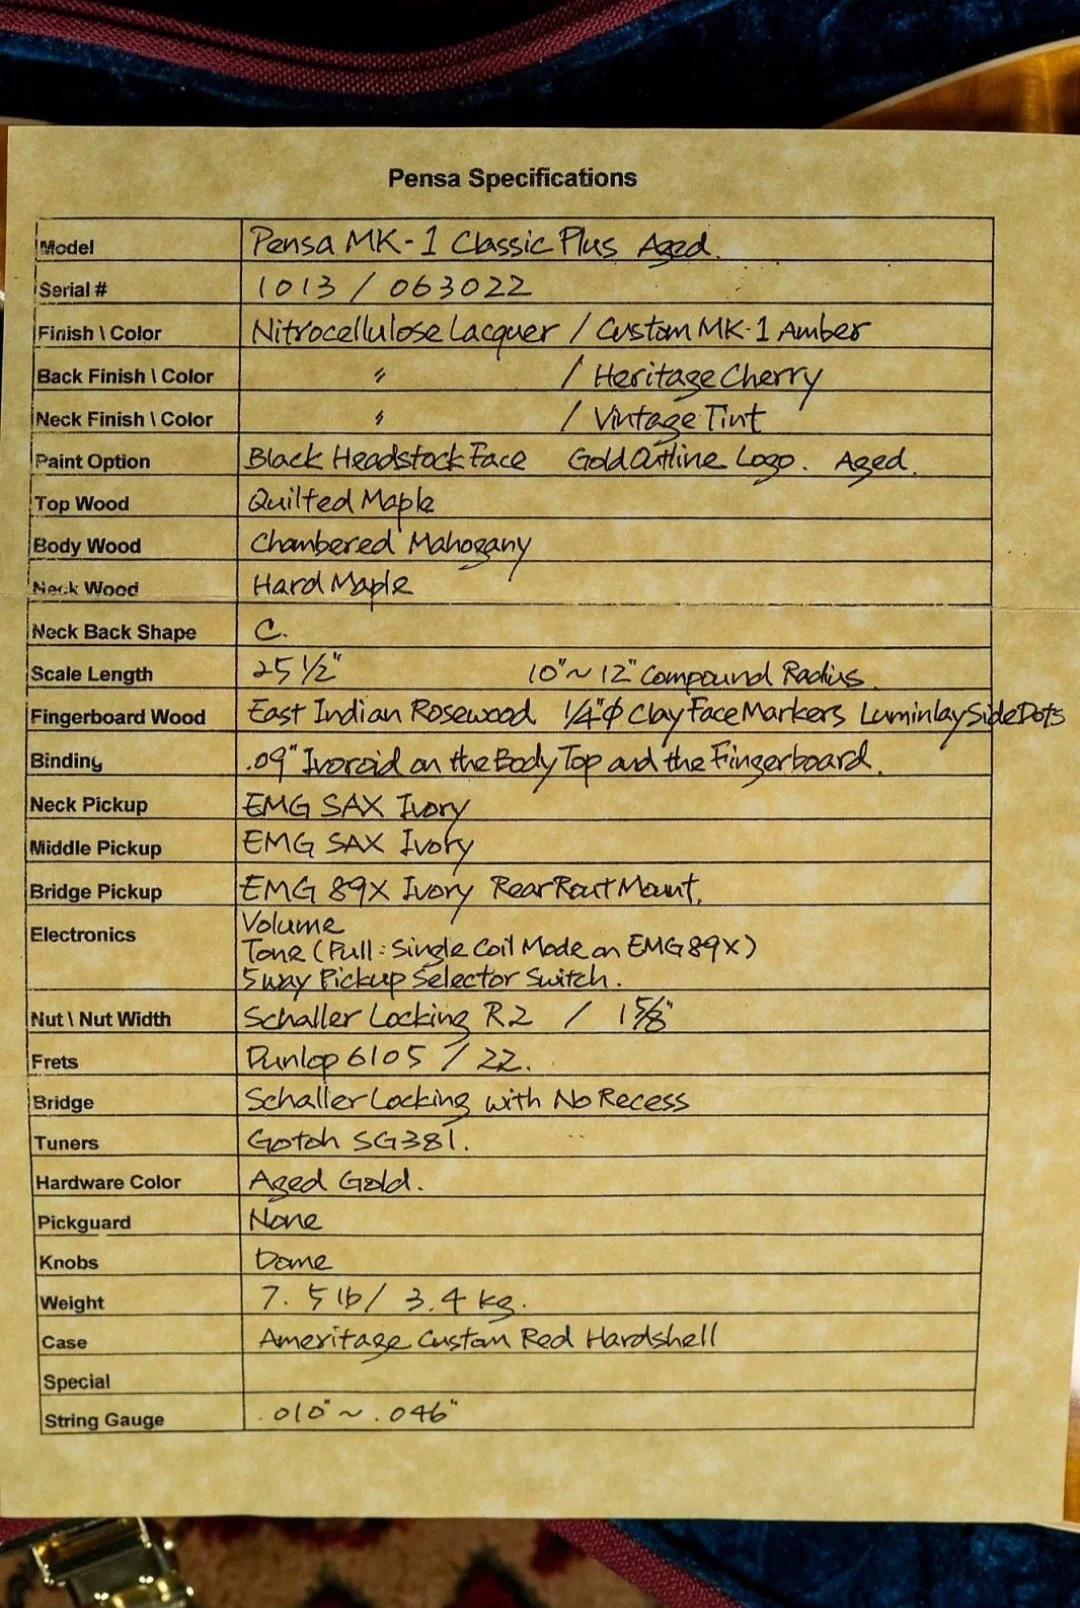 Pensa Specifications
Model Pensa MK-1 Classic Plus Aged.
Serial # 1013 / 063022
Finish \ Color Nitrocellulose Lacquer / Custom MK-1 Amber
Back Finish \ Color 〃 / Heritage Cherry
Neck Finish \ Color 〃 / Vintage Tint
Paint Option Black Headstock Face Gold Outline Logo. Aged.
Top Wood Quilted Maple
Body Wood Chambered Mahogany
Neck Wood Hard Maple
Neck Back Shape C.
Scale Length 25 1/2" 10"~12" Compound Radius.
Fingerboard Wood East Indian Rosewood 1/4"φ Clay Face Markers Luminlay Side Dots
Binding .09" Ivoroid on the Body Top and the Fingerboard.
Neck Pickup EMG SAX Ivory
Middle Pickup EMG SAX Ivory
Bridge Pickup EMG 89X Ivory Rear Rout Mount.
Electronics Volume
Tone (Pull: Single Coil Mode on EMG 89X)
5 way Pickup Selector Switch.
Nut \ Nut Width Schaller Locking R2 / 1 5/8"
Frets Dunlop 6105 / 22.
Bridge Schaller Locking with No Recess
Tuners Gotoh SG381.
Hardware Color Aged Gold.
Pickguard None
Knobs Dome
Weight 7.5 lb / 3.4 kg.
Case Ameritage Custom Red Hardshell
Special
String Gauge .010"~.046"